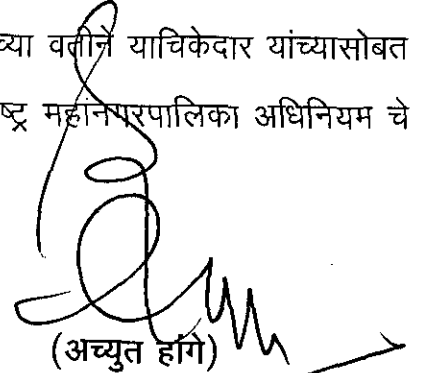 च्या वतीने याचिकेदार यांच्यासोबत
ष्ट्र महानगरपालिका अधिनियम चे
(अच्युत हांगे)